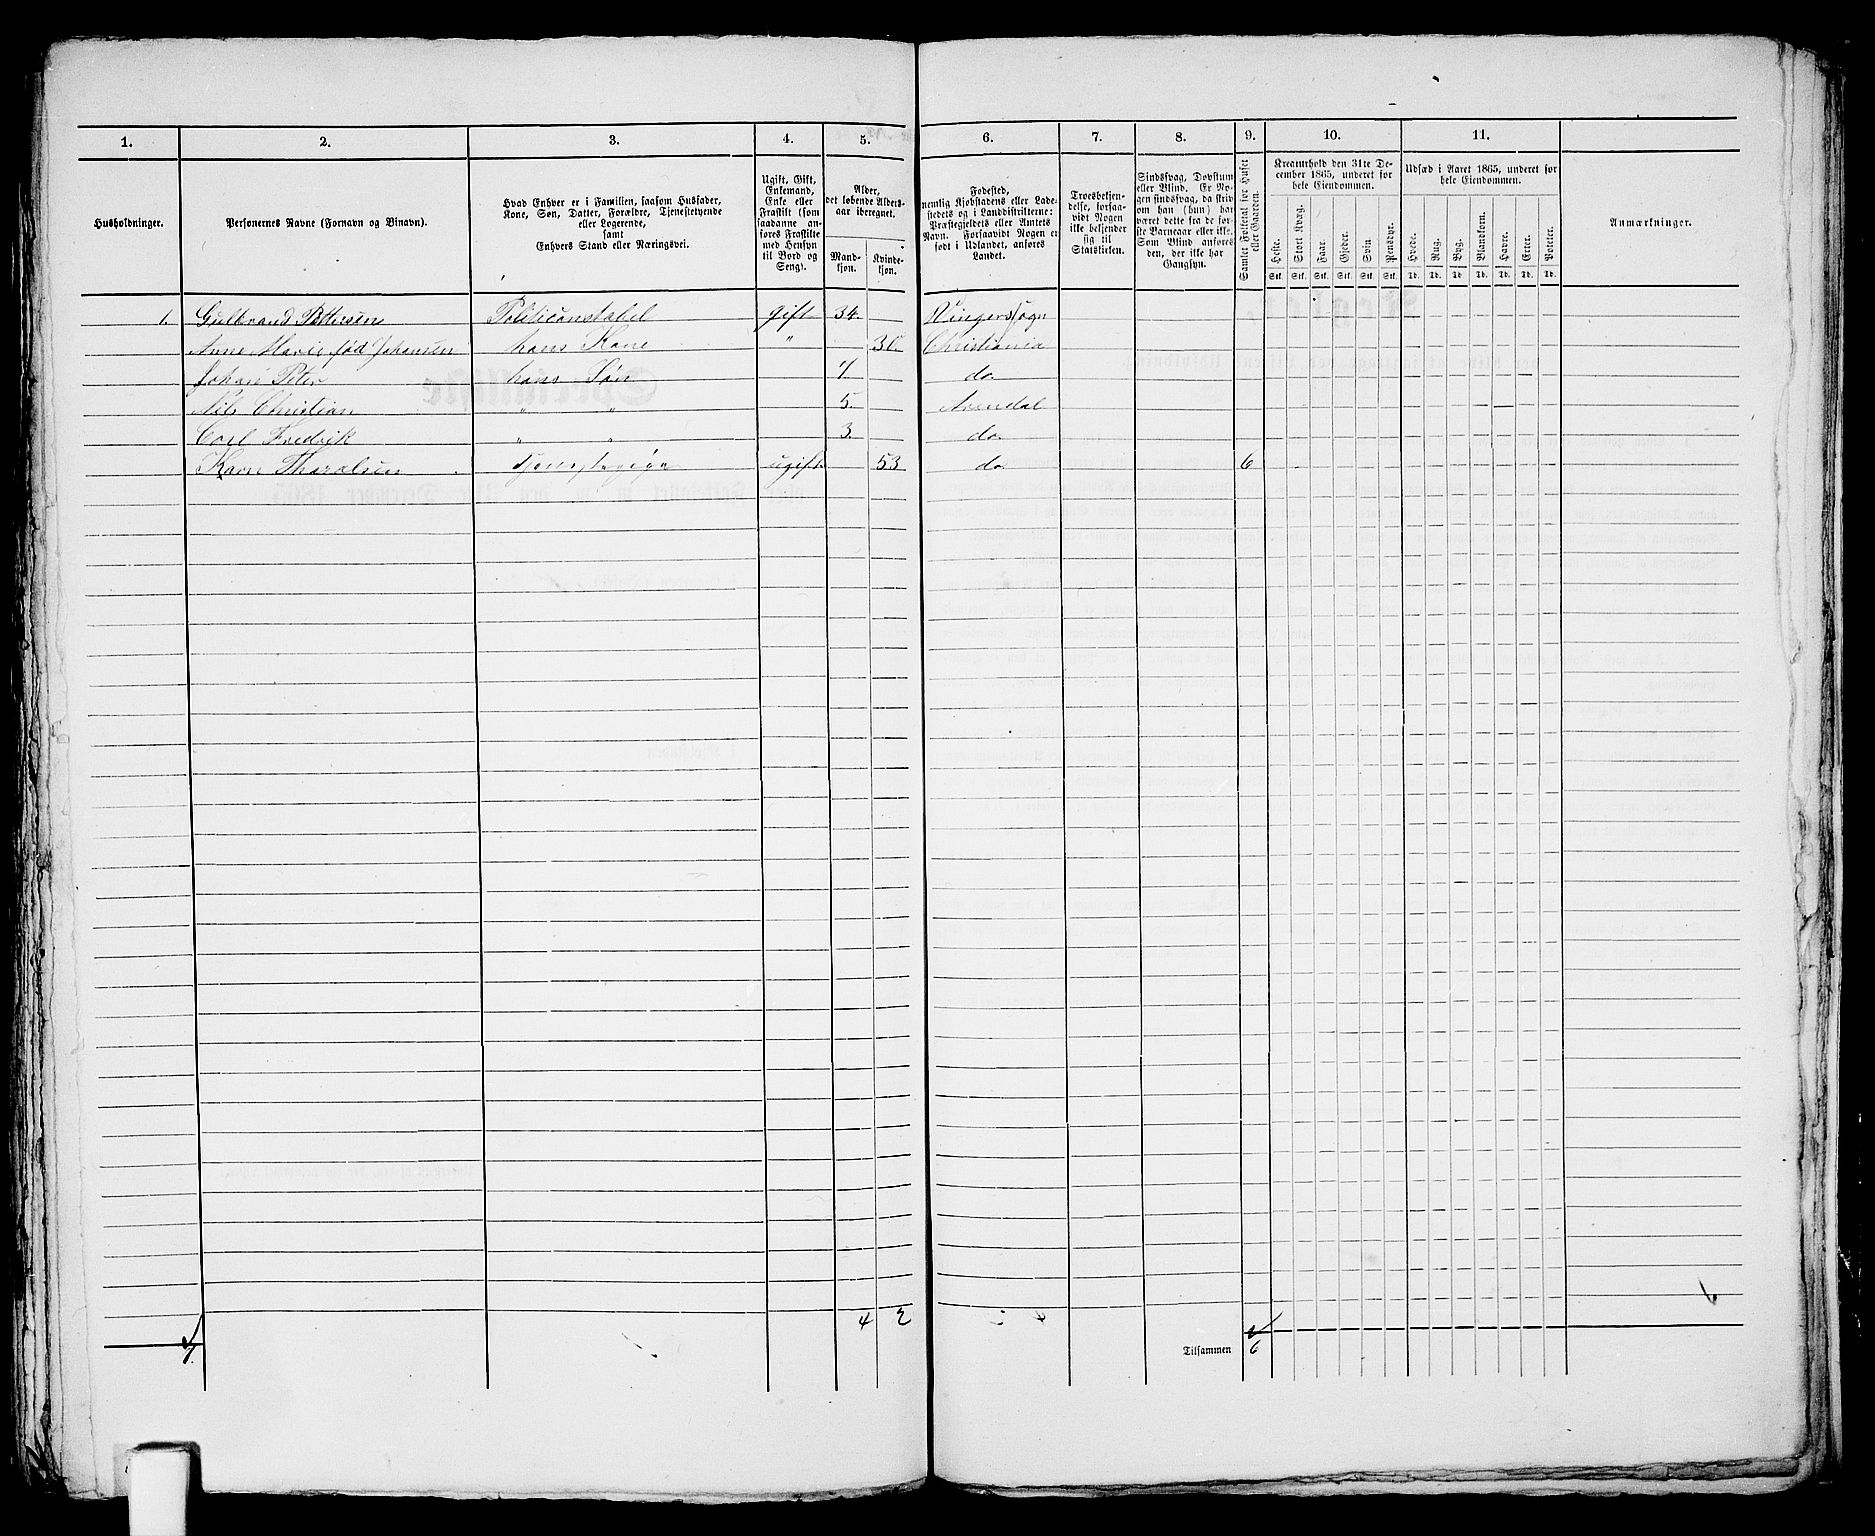 1. 2. 3. 4. 5. 6. 7. 8. 9. 10. 11.
Husholdninger.
Personernes Navne (Fornavn og Binavn).
Hvad Enhver er i Familien, saasom Husfader,
Kone, Søn, Datter, Forældre, Tjenestetyende
eller Logerende,
samt
Enhvers Stand eller Næringsvei.
Ugift, Gift,
Enkemand,
Enke eller
Fraskilt (som
saadanne an-
føres Fraskilte
med Hensyn
til Bord og
Seng).
Alder,
det løbende Alders-
aar iberegnet.
Mand-
kjøn.
Kvinde-
kjøn.
Fødested,
nemlig Kjøbstadens eller Lade-
stedets og i Landdistrikterne:
Præstegjeldets eller Amtets
Navn. Forsaavidt Nogen er
født i Udlandet, anføres
Landet.
Troesbekjen-
delse, forsaa-
vidt Nogen
ikke bekjender
sig til
Statskirken.
Sindssvag, Døvstum
eller Blind. Er No-
gen sindssvag, da skriv
om han (hun) har
været dette fra de før-
ste Barneaar eller ikke.
Som Blind anføres
den, der ikke har
Gangsyn.
Samlet Folketal for Huset
eller Gaarden.
Kreaturhold den 31te De-
cember 1865, underet for
hele Eiendommen.
Heste. Stort Kvæg. Faar. Gjeder. Svin. Rensdyr.
Stk. Stk. Stk. Stk. Stk. Stk.
Udsæd i Aaret 1865, underet for
hele Eiendommen.
Hvede. Rug. Byg. Blandkorn. Havre. Erter. Poteter.
Td. Td. Td. Td. Td. Td. Td.
Anmærkninger.
1. Gulbrand Pettersen Politiconstabel gift 34. Ringerssogn
Anne Marie fød Johansen hans Kone " Christiania
Johan Peter hans Søn 7 do
Nils Christian " " 5. Arendal
Carl Fredrik " " 3. do
Karn Tharalsen Tjenestepige ugift 53 do 6
4 2
1.
Tilsammen 6